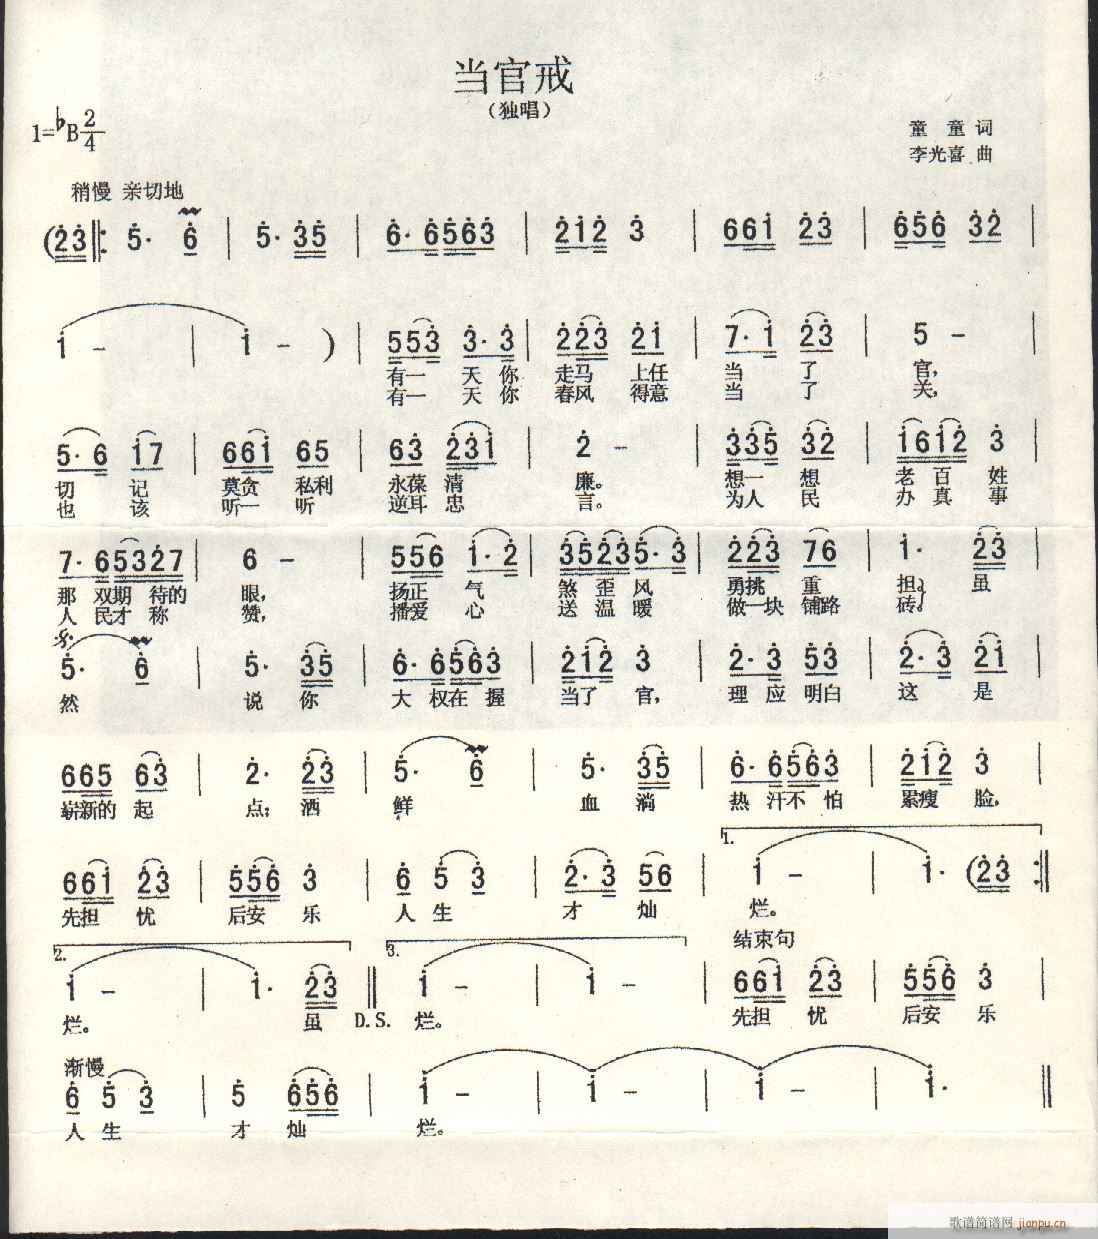 当官戒
（独唱）
1=♭B 2/4
童 童 词
李光喜 曲
稍慢 亲切地
(23 ‖: 5· 6 | 5· 35 | 6· 6563 | 212 3 | 661 23 | 656 32 |
1 - | 1 - ) | 553 3·3 | 223 21 | 7·1 23 | 5 - |
有一 天你 走马 上任 当 了 官，
有一 天你 春风 得意 当 了 关，
5·6 17 | 661 65 | 63 231 | 2 - | 335 32 | 1612 3 |
切 记 莫贪 私利 永葆 清 廉。 想一 想 老百 姓
也 该 听一 听 逆耳 忠 言。 为人 民 办真 事
7·65327 | 6 - | 556 1·2 | 35235·3 | 223 76 | 1· 23 |
那 双期 待的 眼， 扬正 气 煞歪风 勇挑 重 担； 虽
人 民才 称 赞， 播爱 心 送温暖 做一块 铺路 砖。
5· 6 | 5· 35 | 6·6563 | 212 3 | 2·3 53 | 2·3 21 |
然 说 你 大 权在 握 当了 官， 理应 明白 这 是
665 63 | 2· 23 | 5· 6 | 5· 35 | 6·6563 | 212 3 |
崭新的 起 点； 洒 鲜 血 淌 热 汗不 怕 累瘦 脸，
1.
661 23 | 556 3 | 6 5 3 | 2·3 56 | 1 - | 1· (23 :‖
先担 忧 后安 乐 人 生 才 灿 烂。
2. 3. 结束句
1 - | 1· 23 ‖ 1 - | 1 - | 661 23 | 556 3 |
烂。 虽 D.S. 烂。 先担 忧 后安 乐
渐慢
6 5 3 | 5 656 | 1 - | 1 - | 1 - | 1· ‖
人 生 才 灿 烂。
歌谱简谱网 jianpu.cn